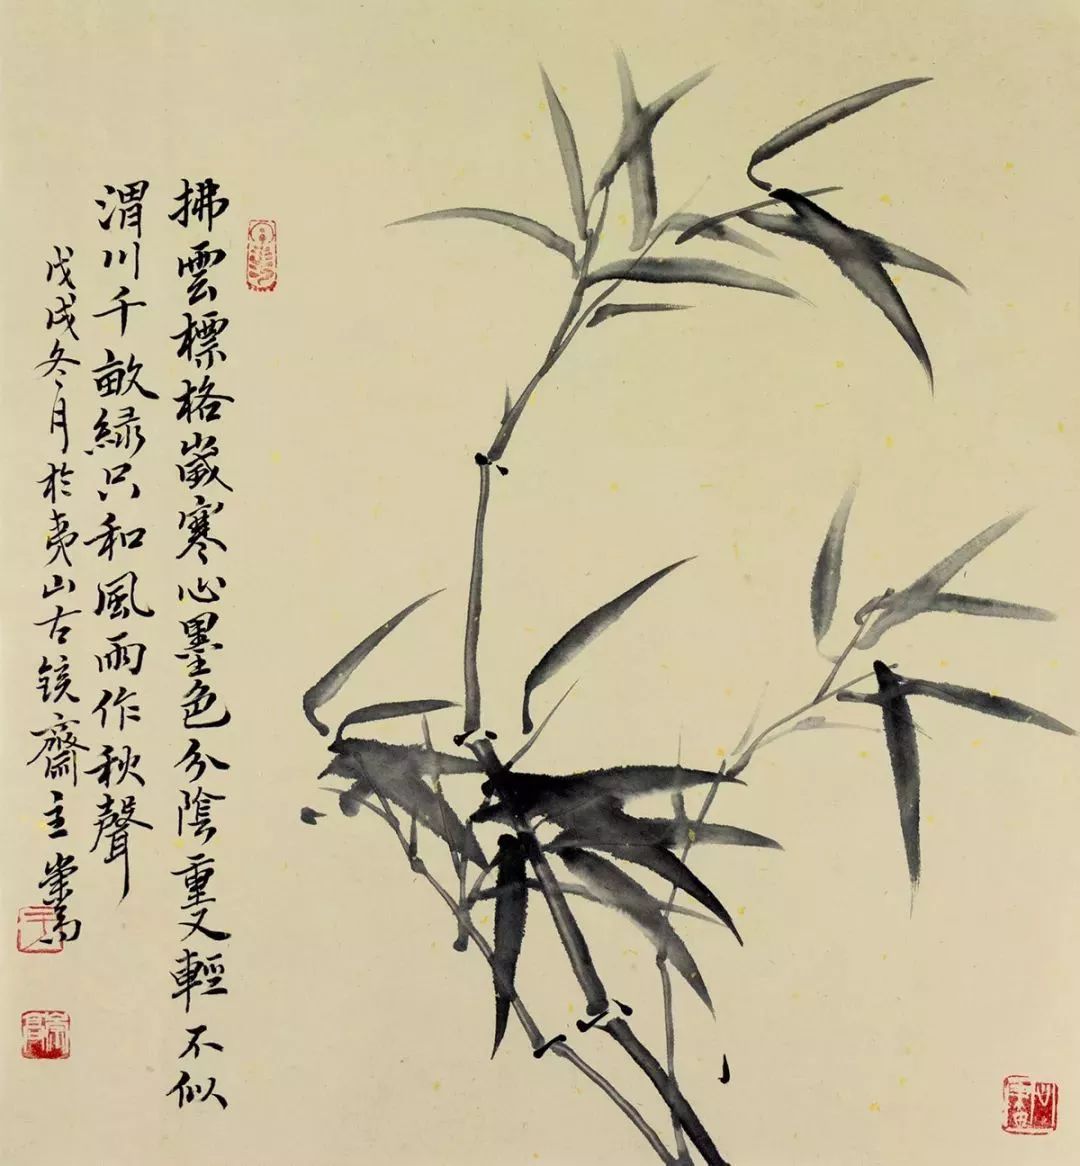 拂雲標格歲寒心墨色分陰重又輕不似
渭川千畝緑只和風雨作秋聲
戊戌冬月於夷山古鏡齋主